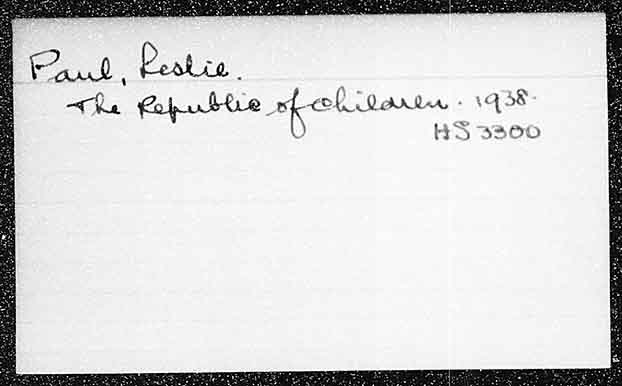 Paul, Leslie.
The Republic of children. 1938.
HS 3300